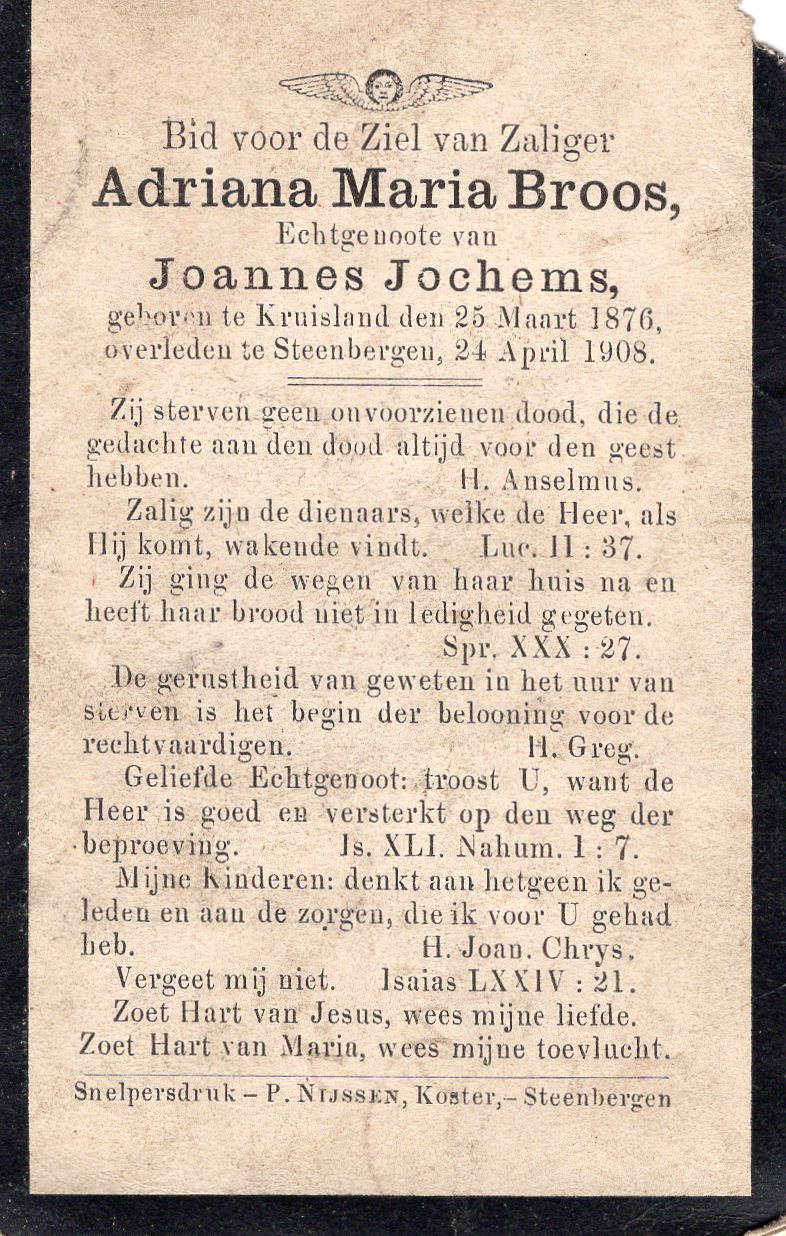 Bid voor de Ziel van Zaliger
Adriana Maria Broos,
Echtgenoote van
Joannes Jochems,
geboren te Kruisland den 25 Maart 1876,
overleden te Steenbergen, 24 April 1908.
Zij sterven geen onvoorzienen dood, die de
gedachte aan den dood altijd voor den geest
hebben. H. Anselmus.
Zalig zijn de dienaars, welke de Heer, als
Hij komt, wakende vindt. Luc. 11 : 37.
Zij ging de wegen van haar huis na en
heeft haar brood niet in ledigheid gegeten.
Spr. XXX : 27.
De gerustheid van geweten in het uur van
sterven is het begin der belooning voor de
rechtvaardigen. H. Greg.
Geliefde Echtgenoot: troost U, want de
Heer is goed en versterkt op den weg der
beproeving. Is. XLI. Nahum. 1 : 7.
Mijne Kinderen: denkt aan hetgeen ik ge-
leden en aan de zorgen, die ik voor U gehad
heb. H. Joan. Chrys.
Vergeet mij niet. Isaias LXXIV : 21.
Zoet Hart van Jesus, wees mijne liefde.
Zoet Hart van Maria, wees mijne toevlucht.
Snelpersdruk – P. NIJSSEN, Koster,– Steenbergen